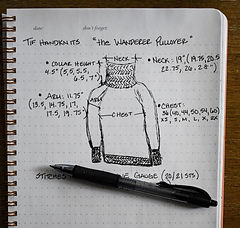 date:
don't forget:
TIF HANDKNITS "THE WANDERER PULLOVER"
• COLLAR HEIGHT
4.5" (5, 5, 5.5,
6.5, 7")
NECK
• NECK: 19" (19.75, 20.5
22.75, 26, 28")
• ARM: 11.75"
(13.5, 14.75, 17,
17.5, 19.75")
ARM
CHEST
• CHEST:
36 (40, 44, 50, 54, 60)
XS, S, M, L, X, XX
GAUGE (20/21 STS)